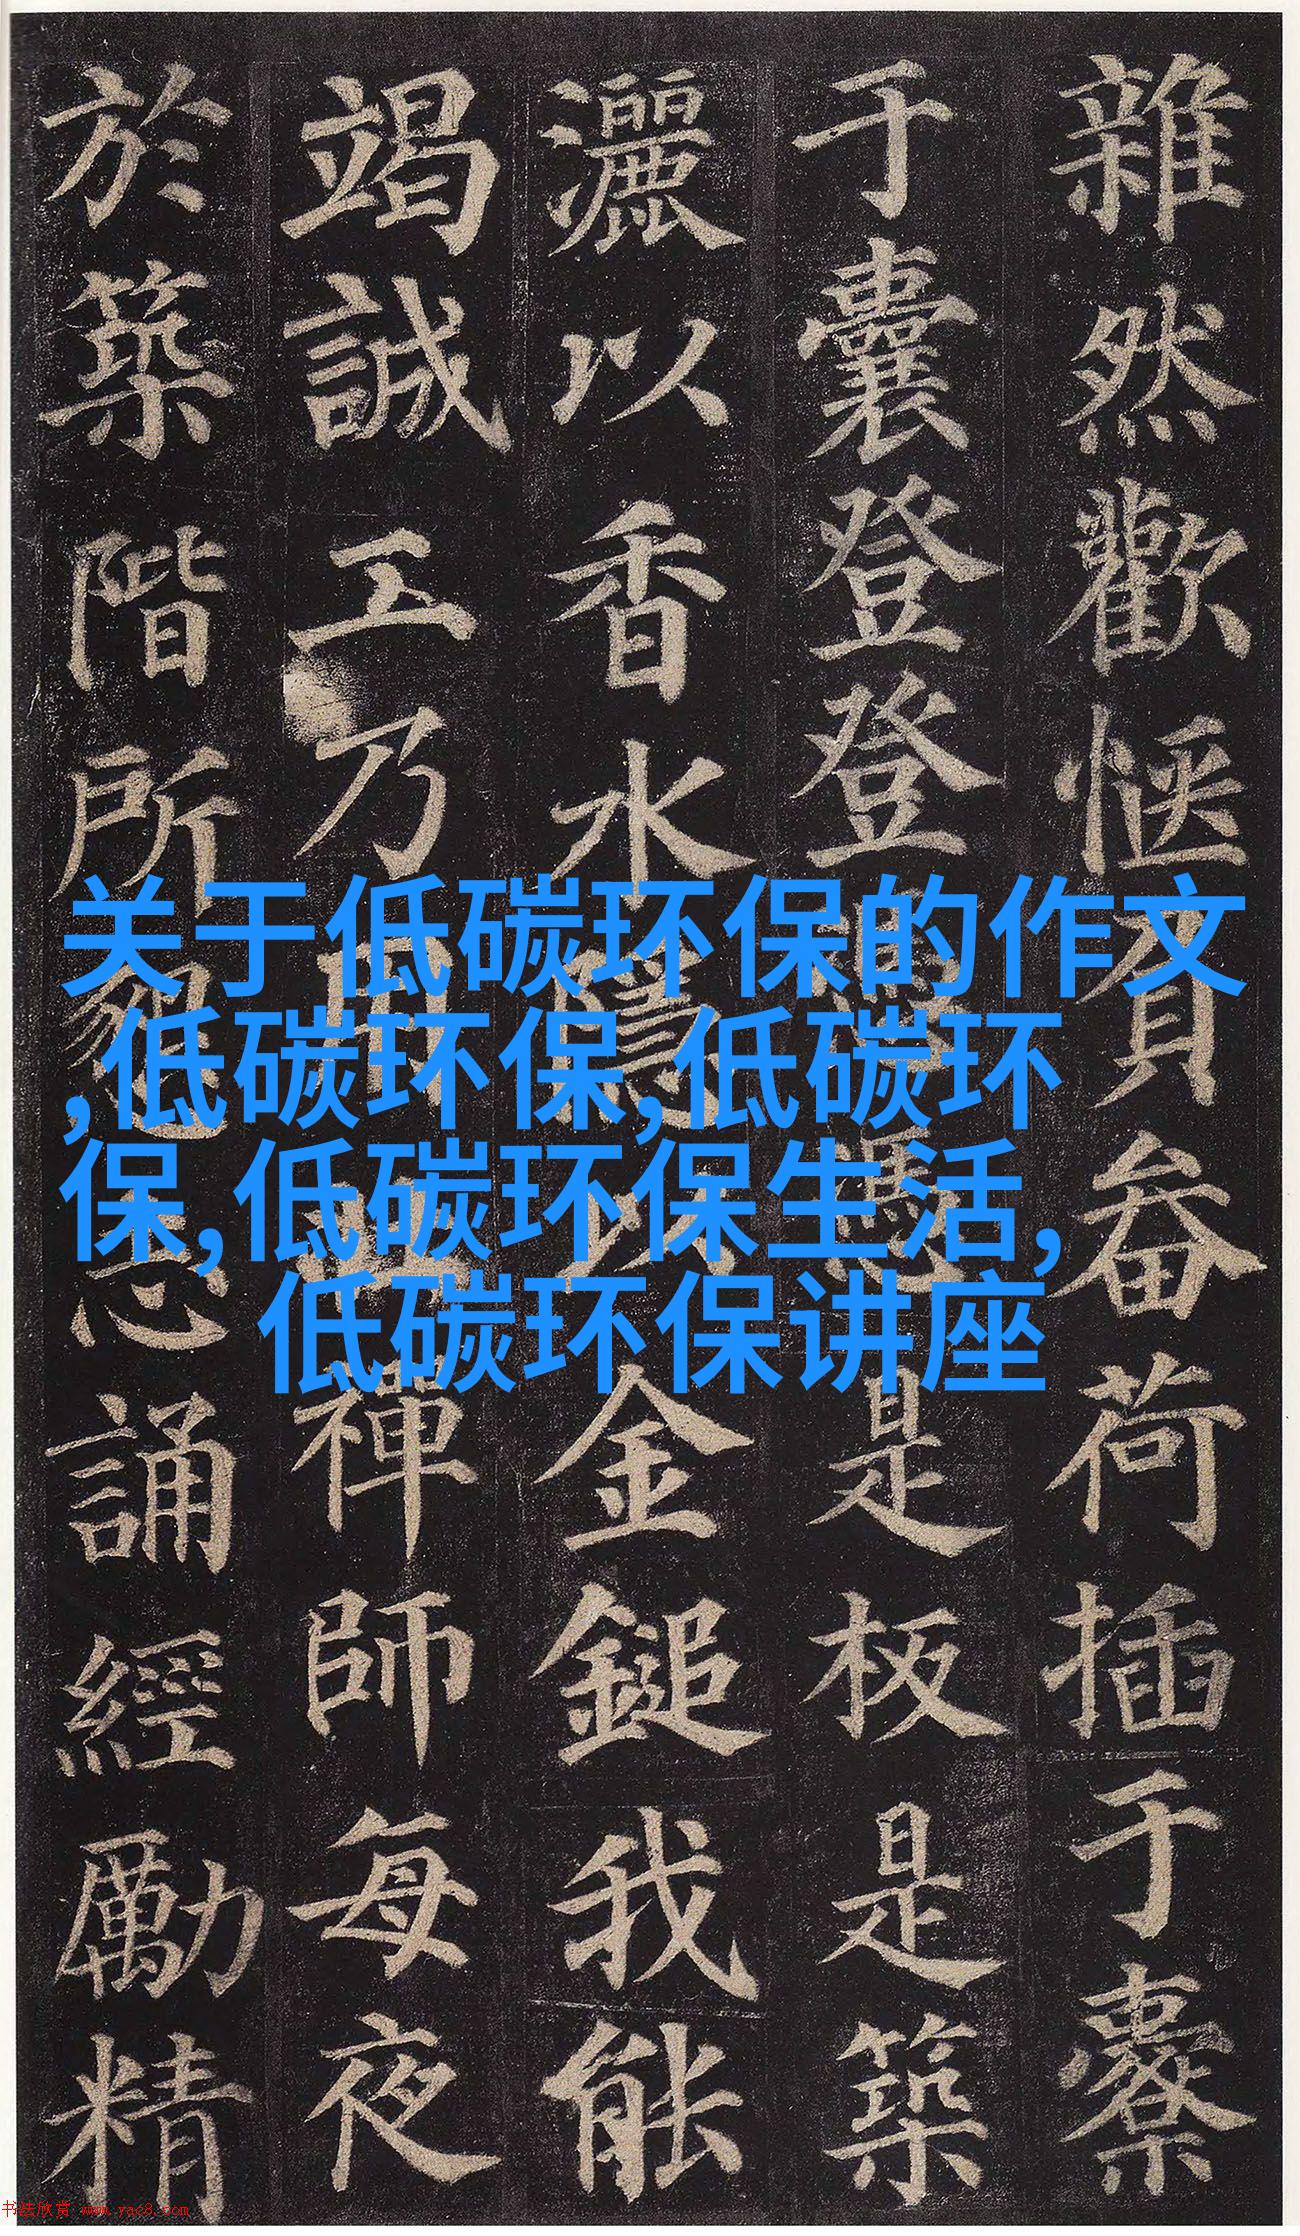 雜然歡愜負畚荷插于橐
于囊登登憑憑是板是築
灑以香水隱以金鎚我能
竭誠工乃用壯禪師每夜
於築階所懇志誦經勵精
关于低碳环保的作文
,低碳环保,低碳环
保,低碳环保生活,
低碳环保讲座
书法欣赏 www.yac8.com